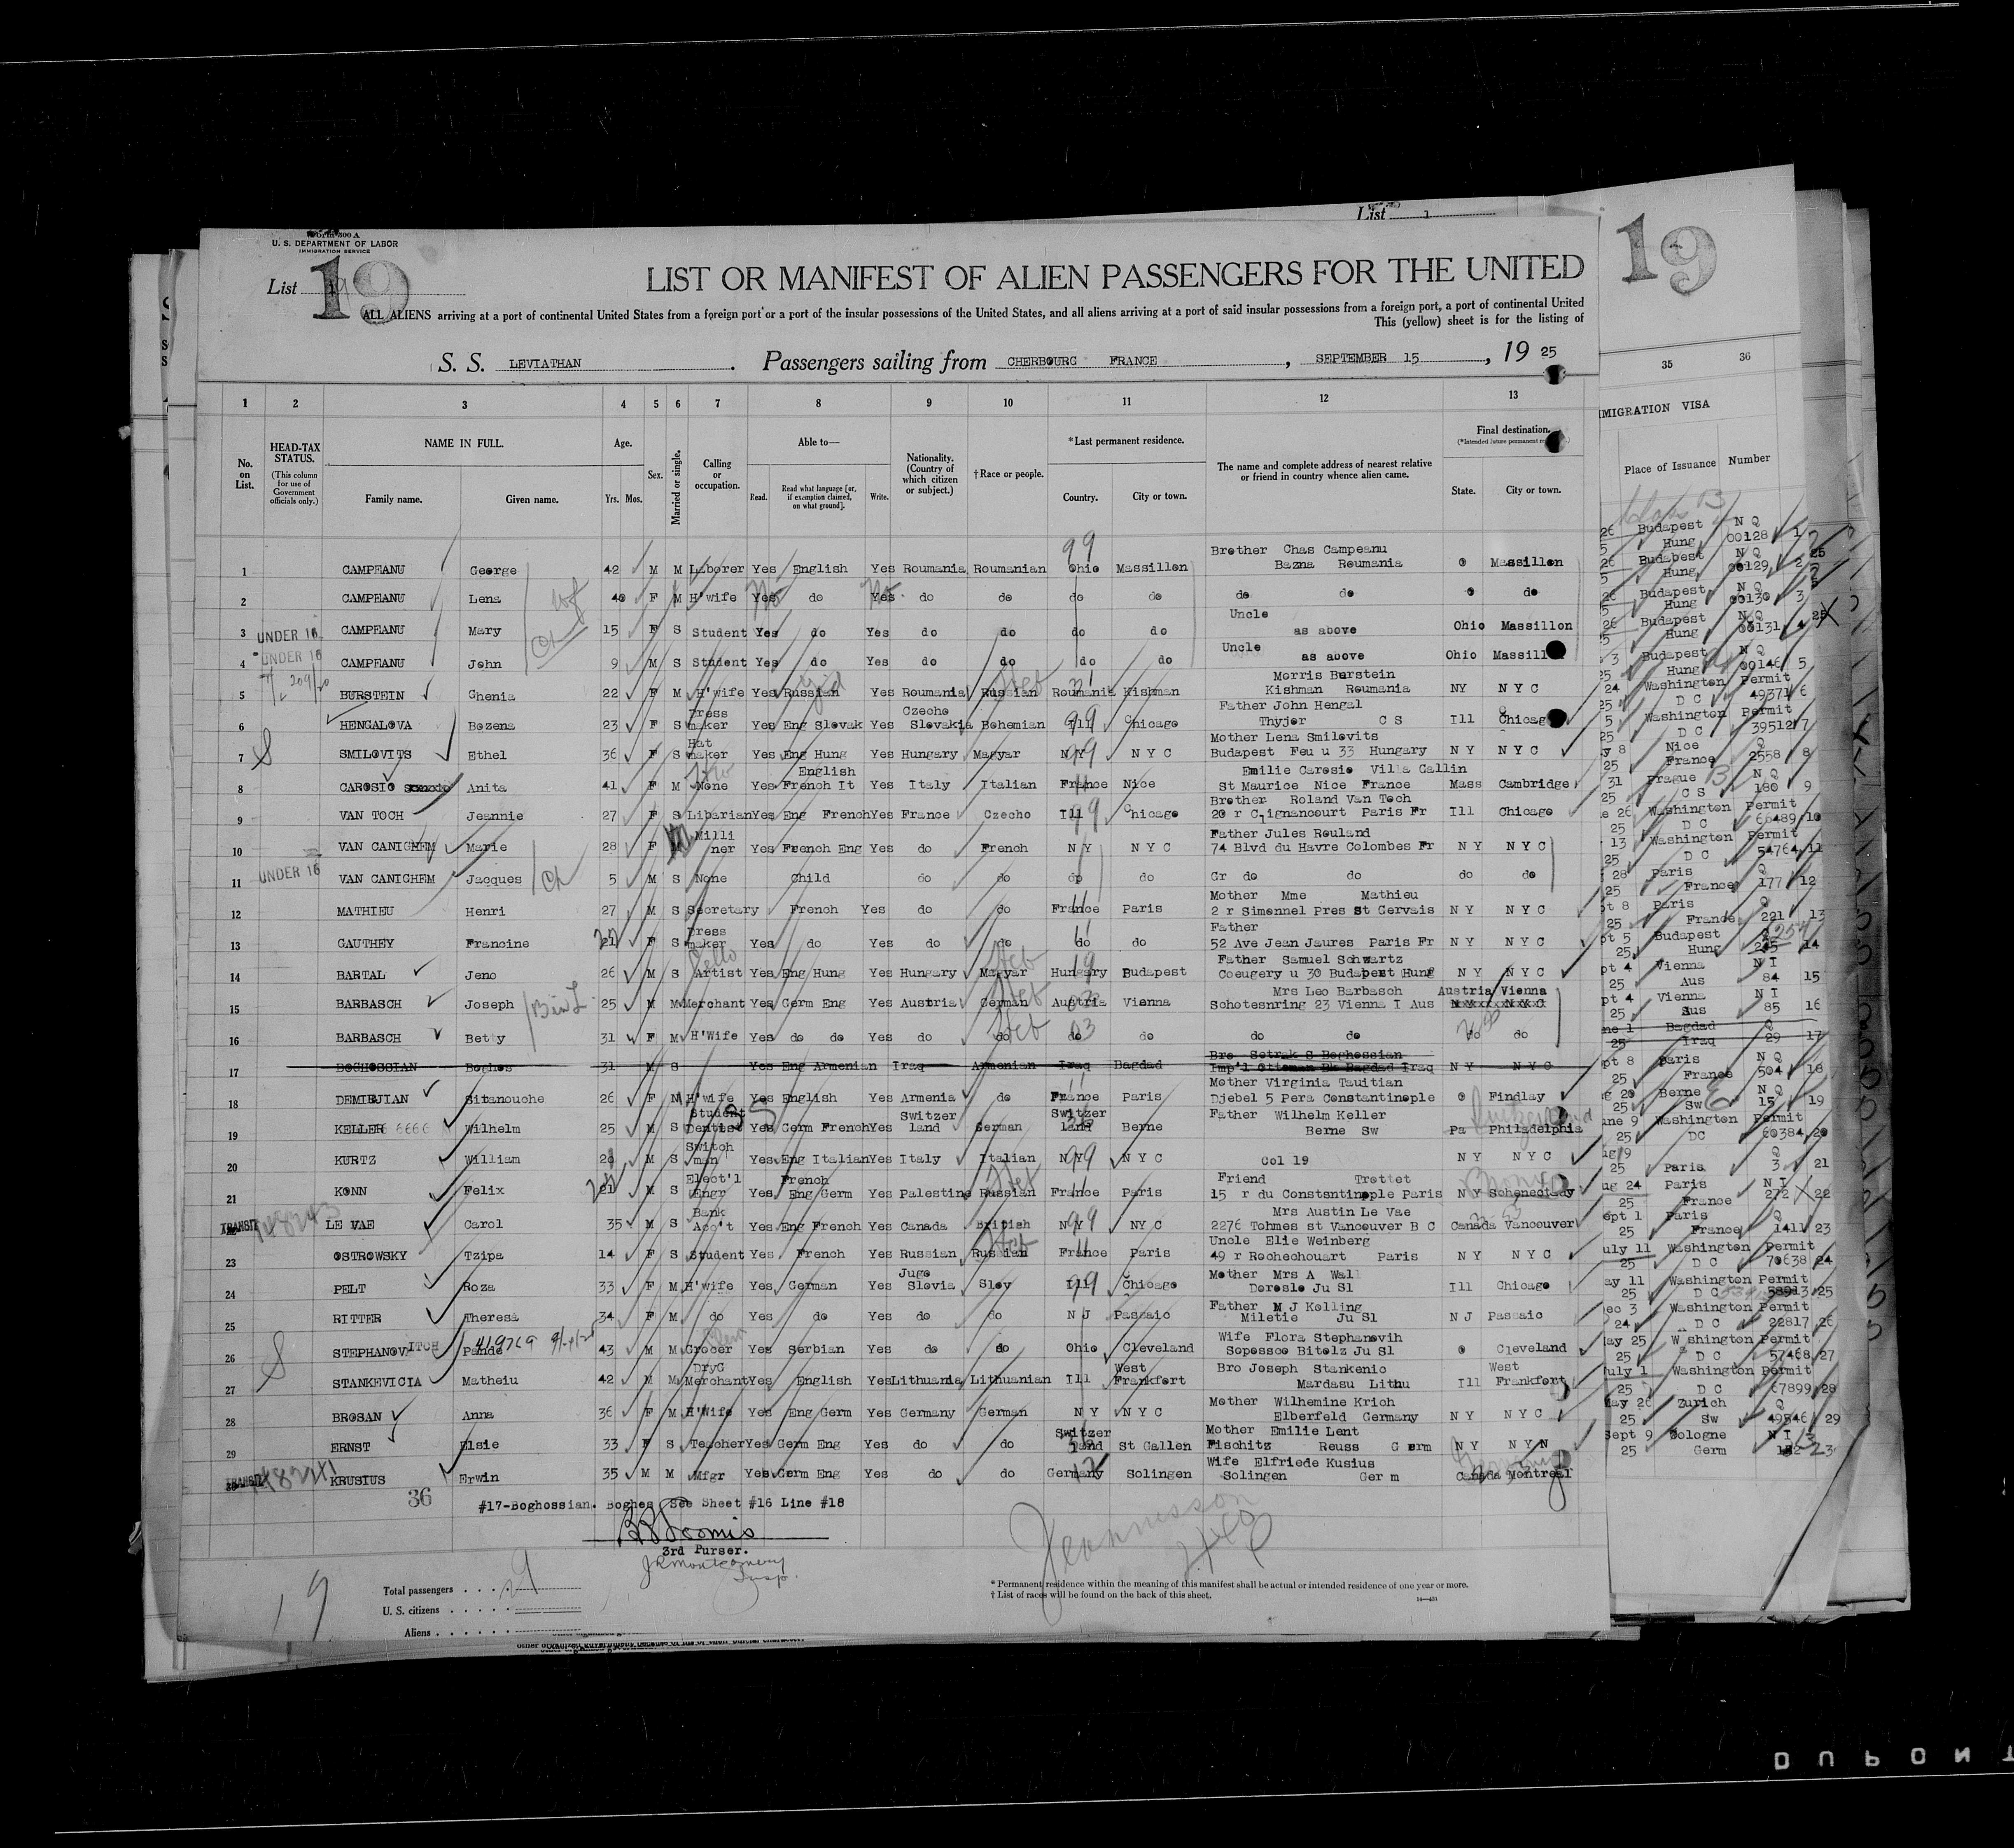 List 1
Form 500 A
U. S. DEPARTMENT OF LABOR
IMMIGRATION SERVICE
List 19
19
LIST OR MANIFEST OF ALIEN PASSENGERS FOR THE UNITED
ALL ALIENS arriving at a port of continental United States from a foreign port or a port of the insular possessions of the United States, and all aliens arriving at a port of said insular possessions from a foreign port, a port of continental United
This (yellow) sheet is for the listing of
S. S. LEVIATHAN. Passengers sailing from CHERBOURG FRANCE, SEPTEMBER 15, 19 25
1 2 3 4 5 6 7 8 9 10 11 12 13 35 36
No. on List.
HEAD-TAX STATUS. (This column for use of Government officials only.)
NAME IN FULL.
Family name. Given name.
Age. Yrs. Mos.
Sex.
Married or single.
Calling or occupation.
Able to—
Read. Read what language [or, if exemption claimed, on what ground]. Write.
Nationality. (Country of which citizen or subject.)
†Race or people.
*Last permanent residence.
Country. City or town.
The name and complete address of nearest relative or friend in country whence alien came.
Final destination.
State. City or town.
IMMIGRATION VISA
Place of Issuance Number
1 CAMPEANU George 42 M M Laborer Yes English Yes Roumania Roumanian Ohio Massillon Brother Chas Campeanu Bazna Roumania O Massillon
2 CAMPEANU Lena 40 F M H'wife Yes do Yes do do do do do do O do
3 UNDER 16 CAMPEANU Mary 15 F S Student Yes do Yes do do do do Uncle as above Ohio Massillon
4 UNDER 16 CAMPEANU John 9 M S Student Yes do Yes do do do do Uncle as above Ohio Massillon
5 BURSTEIN Chenia 22 F M H'wife Yes Russian Yes Roumania Russian Roumania Kishman Morris Burstein Kishman Roumania NY N Y C
6 HENGALOVA Bozena 23 F S Dress maker Yes Eng Slovak Yes Czecho Slovakia Bohemian Ill Chicago Father John Hengal Thyjor C S Ill Chicago
7 SMILOVITS Ethel 36 F S Hat maker Yes Eng Hung Yes Hungary Magyar N Y N Y C Mother Lena Smilovits Budapest Feu u 33 Hungary N Y N Y C
8 CAROSIO Anita 41 F M None Yes English French It Yes Italy Italian France Nice Emilie Carosio Villa Gallin St Maurice Nice France Mass Cambridge
9 VAN TOCH Jeannie 27 F S Libarian Yes Eng French Yes France Czecho Ill Chicago Brother Roland Van Toch 20 r Clignancourt Paris Fr Ill Chicago
10 VAN CANIGHEM Marie 28 F M Milli ner Yes French Eng Yes do French N Y N Y C Father Jules Rouland 74 Blvd du Havre Colombes Fr N Y N Y C
11 UNDER 16 VAN CANIGHEM Jacques 5 M S None Child do do do do Gr do do do do
12 MATHIEU Henri 27 M S Secretary French Yes do do France Paris Mother Mme Mathieu 2 r Simonnel Pres St Gervais N Y N Y C
13 GAUTHEY Francine 21 F S Dress maker Yes do Yes do do do do Father 52 Ave Jean Jaures Paris Fr N Y N Y C
14 BARTAL Jeno 26 M S Artist Yes Eng Hung Yes Hungary Magyar Hungary Budapest Father Samuel Schwartz Coeugery u 30 Budapest Hung N Y N Y C
15 BARBASCH Joseph 25 M M Merchant Yes Germ Eng Yes Austria German Austria Vienna Mrs Leo Barbasch Schotesnring 23 Vienna I Aus Austria Vienna
16 BARBASCH Betty 31 F M H'Wife Yes do do Yes do do do do do do do do
17 BOGHOSSIAN Boghos 31 M S Yes Eng Armenian Iraq Armenian Iraq Bagdad Bro Setrak S Boghossian Imp'l Ottoman Bk Bagdad Iraq N Y N Y C
18 DEMIRJIAN Sitanouche 26 F M H'wife Yes English Yes Armenia do France Paris Mother Virginia Tauitian Djebel 5 Pera Constantinople O Findlay
19 KELLER 6666 Wilhelm 25 M S Student Dentist Yes Germ French Yes Switzer land German Switzer land Berne Father Wilhelm Keller Berne Sw Pa Philadelphia
20 KURTZ William 20 M S Switch man Yes Eng Italian Yes Italy Italian N Y N Y C Col 19 N Y N Y C
21 KONN Felix 21 M S Elect'l Engr Yes French Eng Germ Yes Palestine Russian France Paris Friend Trottot 15 r du Constantinople Paris N Y Schenectady
TRANSIT 22 LE VAE Carol 35 M S Bank Acc't Yes Eng French Yes Canada British N Y NY C Mrs Austin Le Vae 2276 Tohmes st Vancouver B C Canada Vancouver
23 OSTROWSKY Tzipa 14 F S Student Yes French Yes Russian Russian France Paris Uncle Elie Weinberg 49 r Rochechouart Paris N Y N Y C
24 PELT Roza 33 F M H'wife Yes German Yes Jugo Slovia Slov Ill Chicago Mother Mrs A Wall Dorosle Ju Sl Ill Chicago
25 RITTER Theresa 34 F M do Yes do Yes do do N J Passaic Father M J Kolling Miletie Ju Sl N J Passaic
26 STEPHANOVITCH Pande 43 M M Grocer Yes Serbian Yes do do Ohio Cleveland Wife Flora Stephanovih Sopossoo Bitolz Ju Sl O Cleveland
27 STANKEVICIA Matheiu 42 M M DryG Merchant Yes English Yes Lithuania Lithuanian Ill West Frankfort Bro Joseph Stankenic Mardasu Lithu Ill West Frankfort
28 BROSAN Anna 36 F M H'Wife Yes Eng Germ Yes Germany German N Y N Y C Mother Wilhemine Krich Elberfeld Germany N Y N Y C
29 ERNST Elsie 33 F S Teacher Yes Germ Eng Yes do do Switzer land St Gallen Mother Emilie Lent Fischitz Reuss Germ N Y N Y N
TRANSIT 30 KRUSIUS Erwin 35 M M Mfgr Yes Germ Eng Yes do do Germany Solingen Wife Elfriede Kusius Solingen Germ Canada Montreal
36
#17-Boghossian. Boghos See Sheet #16 Line #18
3rd Purser.
JR Montgomery
Insp.
19
Total passengers
U. S. citizens
Aliens
* Permanent residence within the meaning of this manifest shall be actual or intended residence of one year or more.
† List of races will be found on the back of this sheet.
Budapest Hung N Q 00128 1
Budapest Hung N Q 00129 2
Budapest Hung N Q 00130 3
Budapest Hung N Q 00131 4
Budapest Hung N Q 00146 5
Washington D C Permit 49371 6
Washington D C Permit 39512 7
Nice France Q 2558 8
Prague C S N Q 180 9
Washington D C Permit 66489 10
Washington D C Permit 54764 11
Paris France Q 177 12
Paris France Q 221 13
Budapest Hung 14
Vienna Aus N I 84 15
Vienna Aus N I 85 16
Bagdad Iraq Q 29 17
Paris France N Q 504 18
Berne Sw N Q 15 19
Washington DC Permit 60384 20
Paris Q 3 21
Paris France N I 272 22
Paris France Q 1411 23
Washington D C Permit 70638 24
Washington D C Permit 58913 25
Washington D C Permit 22817 26
Washington D C Permit 57468 27
Washington D C Permit 67899 28
Zurich Sw Q 49546 29
Cologne Germ N I
DUPONT